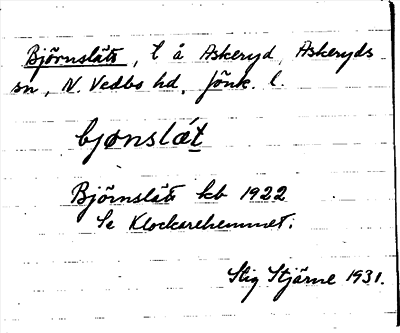 Björnslätt, t å Askeryd, Askeryds
sn, N. Vedbo hd, Jönk. l.
bjønslæt
Björnslätt kb 1922
Se Klockarehemmet.
Stig Stjärne 1931.